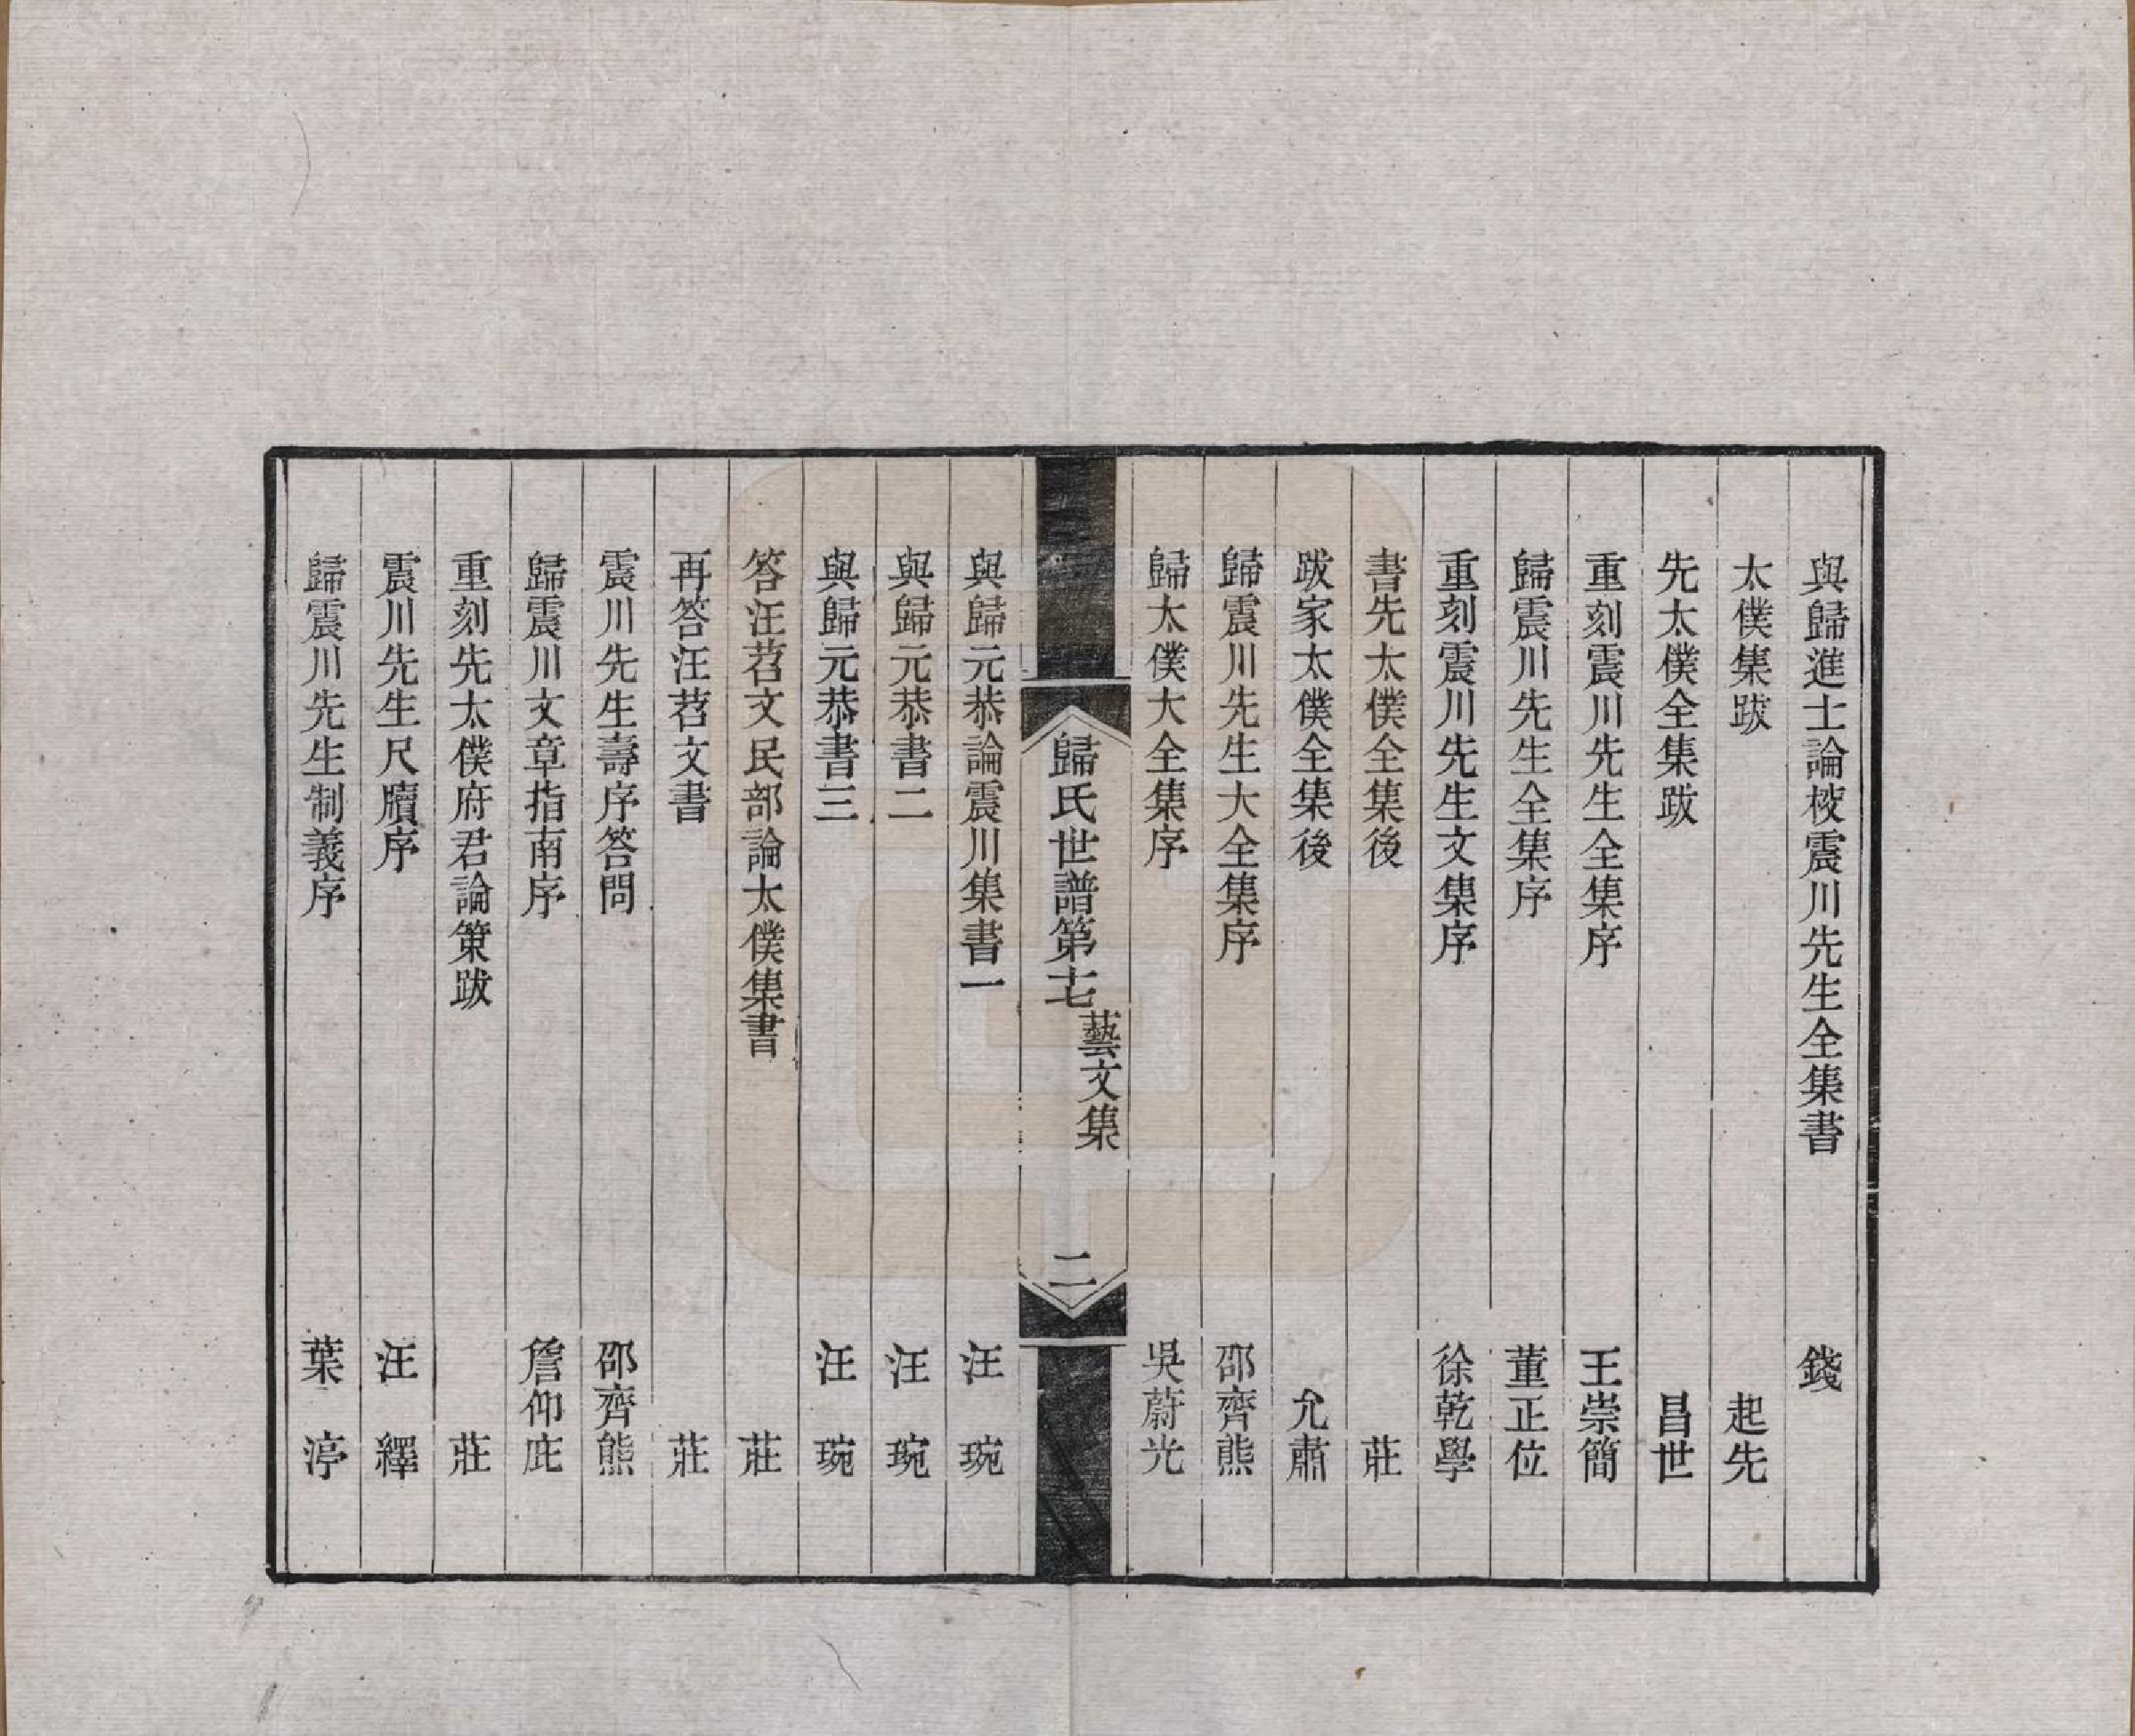 與歸進士論校震川先生全集書 錢
太僕集跋 起先
先太僕全集跋 昌世
重刻震川先生全集序 王崇簡
歸震川先生全集序 董正位
重刻震川先生文集序 徐乾學
書先太僕全集後 莊
跋家太僕全集後 允肅
歸震川先生大全集序 邵齊熊
歸太僕大全集序 吳蔚光
歸氏世譜第七 藝文集 二
與歸元恭論震川集書一 汪琬
與歸元恭書二 汪琬
與歸元恭書三 汪琬
答汪苕文民部論太僕集書 莊
再答汪苕文書 莊
震川先生壽序答問 邵齊熊
歸震川文章指南序 詹仰庇
重刻先太僕府君論策跋 莊
震川先生尺牘序 汪繹
歸震川先生制義序 葉渟